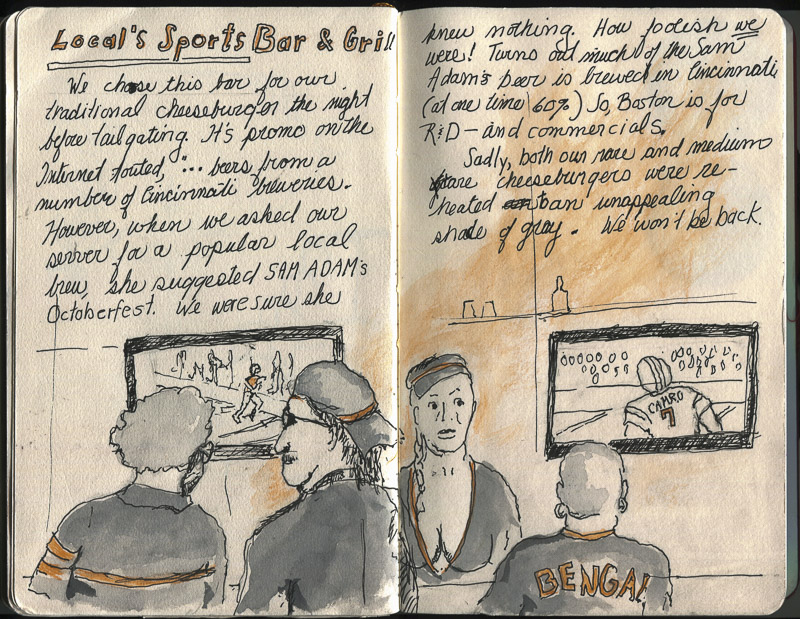 Local's Sports Bar & Grill
We chose this bar for our
traditional cheeseburger the night
before tailgating. It's promo on the
Internet touted, "... beers from a
number of Cincinnati breweries.
However, when we asked our
server for a popular local
brew, she suggested SAM ADAM's
Octoberfest. We were sure she
knew nothing. How foolish we
were! Turns out much of the Sam
Adam's beer is brewed in Cincinnati,
(at one time 60%) So, Boston is for
R&D - and commercials.
Sadly, both our rare and medium
rare cheeseburgers were re-
heated an unappealing
shade of gray. We won't be back.
CAMRO
7
BENGAL